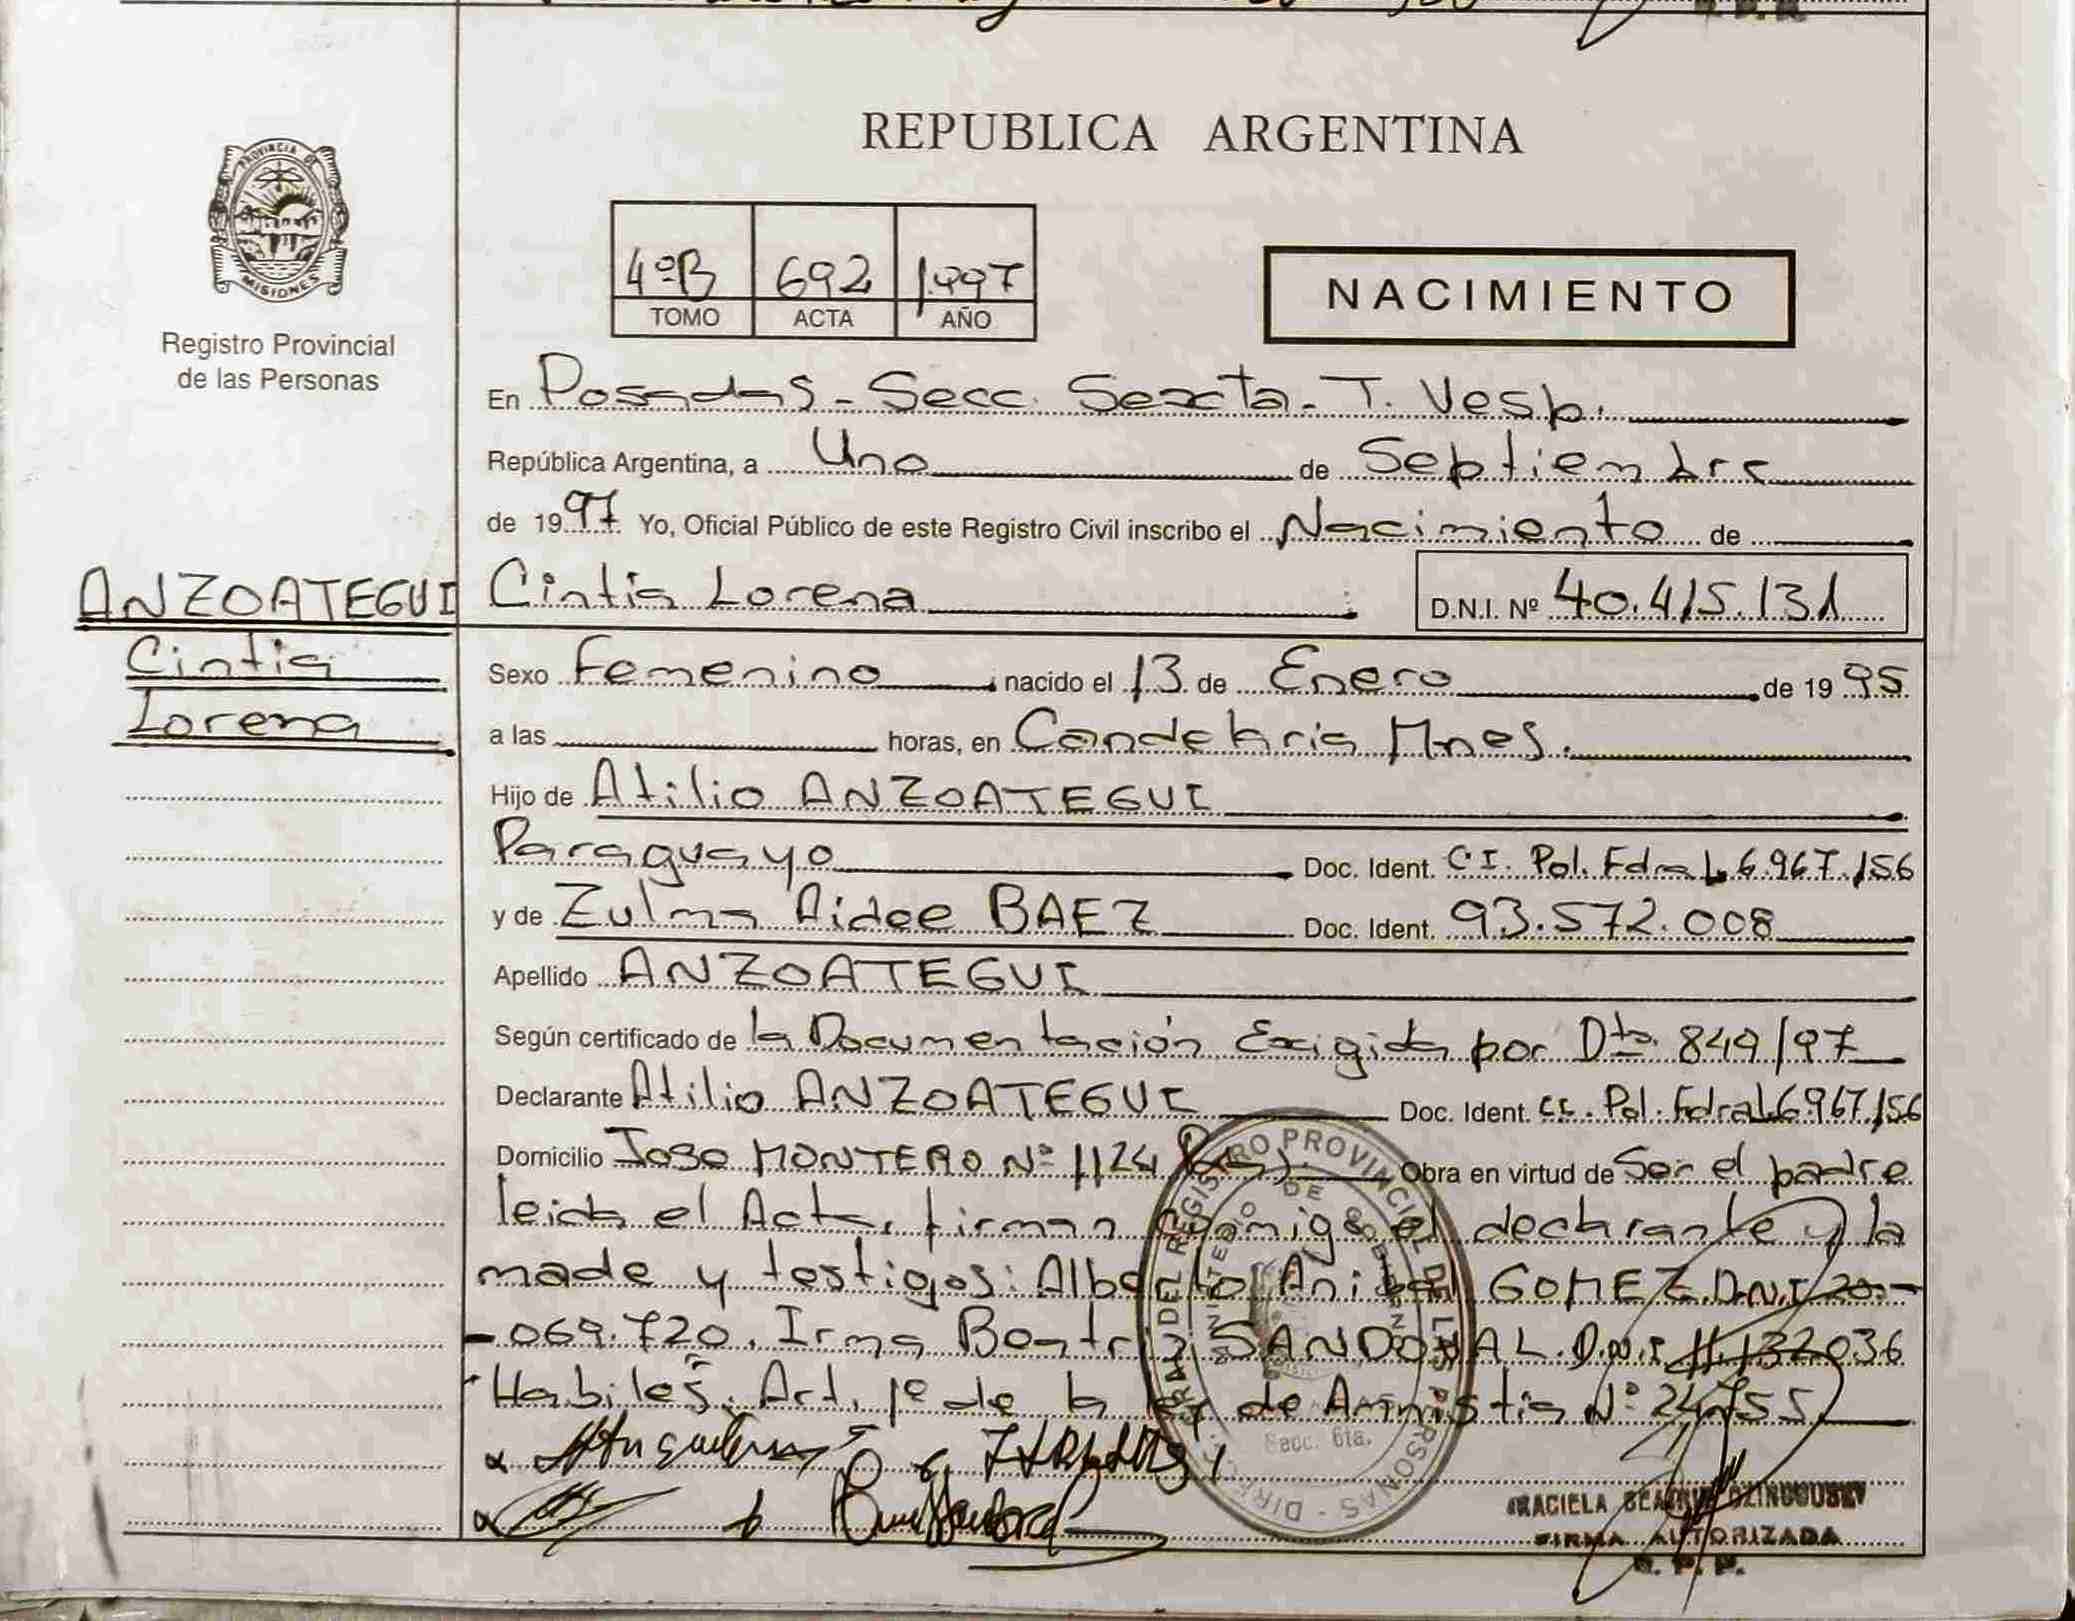 REPUBLICA ARGENTINA
PROVINCIA DE
MISIONES
Registro Provincial
de las Personas
4ºB 692 1.997
TOMO ACTA AÑO
NACIMIENTO
En Posadas - Secc. Sexta - T. Vesp.
República Argentina, a Uno de Septiembre
de 1997 Yo, Oficial Público de este Registro Civil inscribo el Nacimiento de
ANZOATEGUI Cintia Lorena D.N.I. Nº 40.415.131
Cintia
Lorena
Sexo Femenino nacido el 13 de Enero de 1995
a las horas, en Candelaria Mnes.
Hijo de Atilio ANZOATEGUI
Paraguayo Doc. Ident. C.I. Pol. Fdral 6.967.156
y de Zulma Aidee BAEZ Doc. Ident. 93.572.008
Apellido ANZOATEGUI
Según certificado de la Documentación Exigida por Dto. 849/97
Declarante Atilio ANZOATEGUI Doc. Ident. CI. Pol. Fdral 6.967.156
Domicilio Jose MONTERO Nº 1124 Obra en virtud de Ser el padre
leida el Acta, firman conmigo el declarante y la
made y testigos: Alberto Anibal GOMEZ. D.N.I 20.-
-069.720. Irma Beatriz SANDOVAL. D.N.I 11.132036
Habiles. Art. 1º de la ley de Amnistia Nº 24.755
DEL REGISTRO PROVINCIAL DE LAS PERSONAS
Secc. 6ta.
FIRMA AUTORIZADA